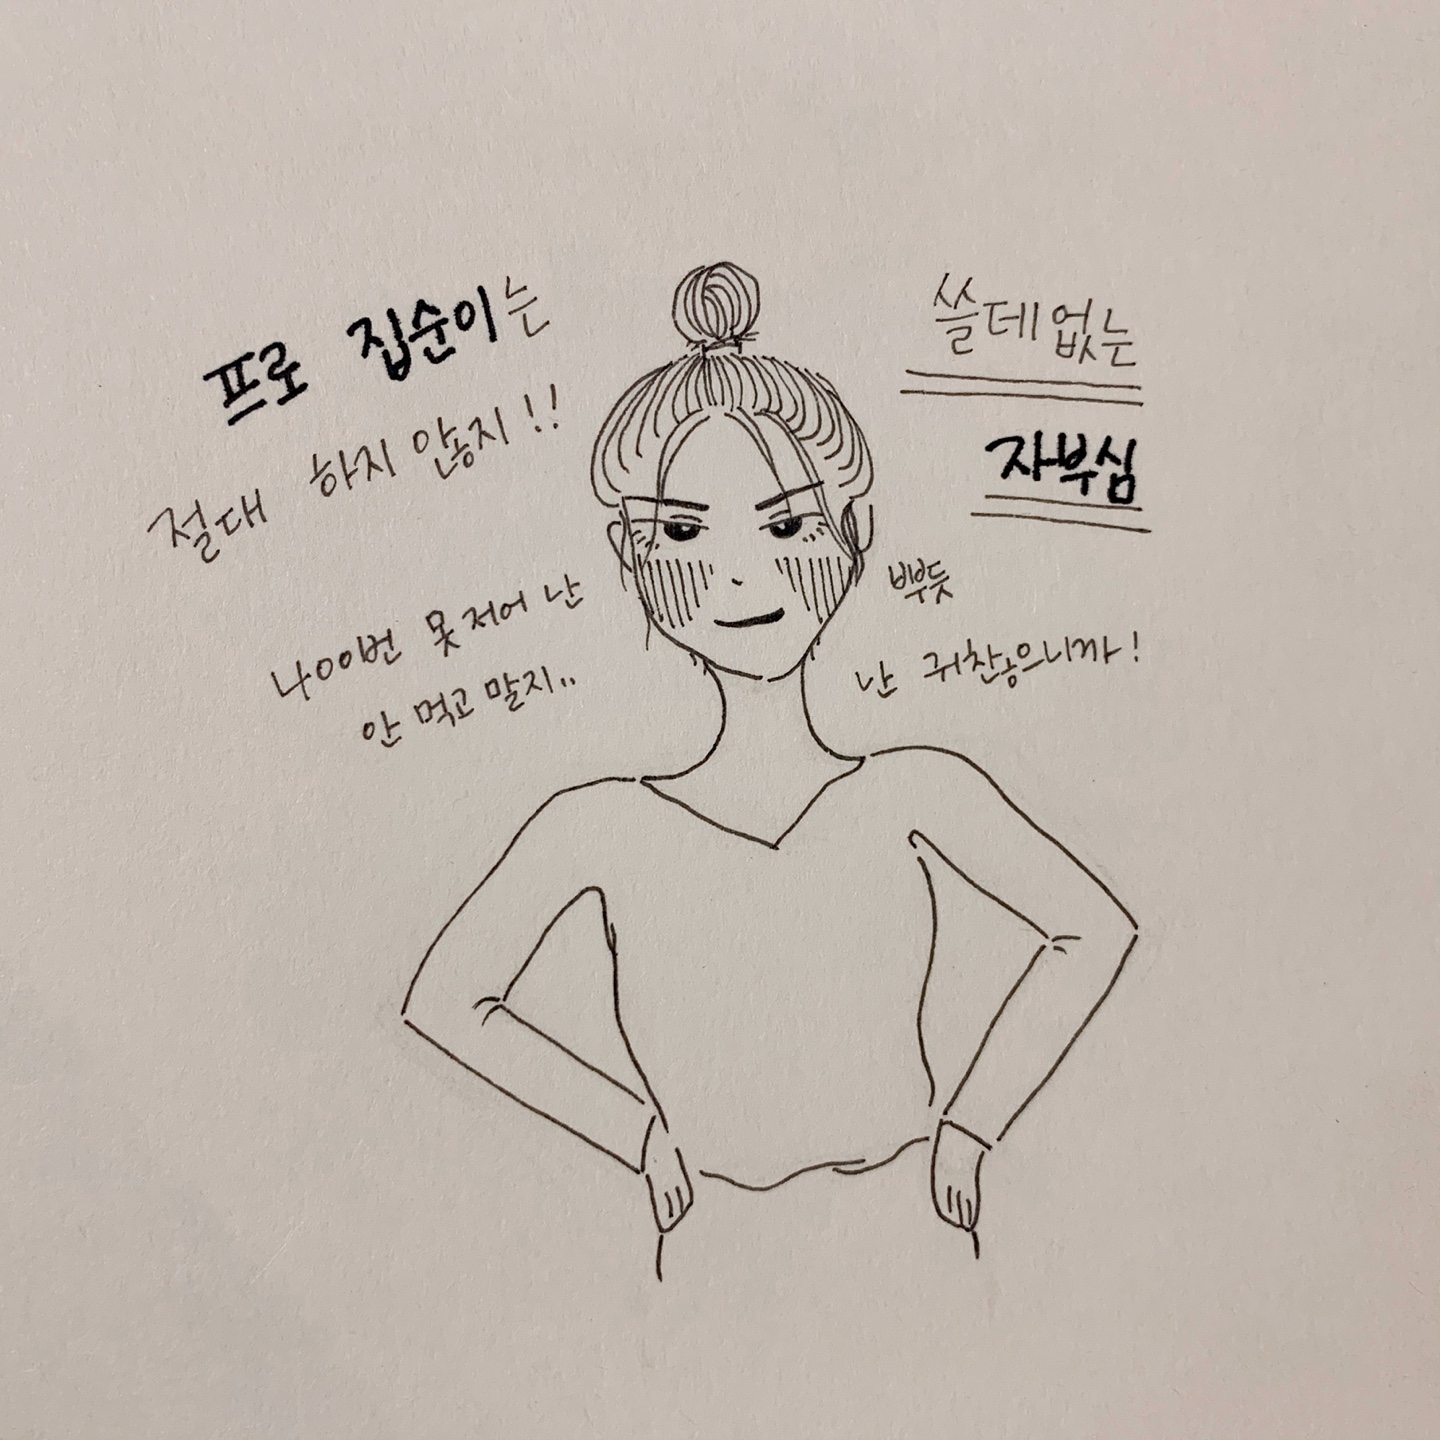 프로 집순이는
절대 하지 않지!!
400번 못 저어 난
안 먹고 말지..
쓸데없는
자부심
뿌듯
난 귀찮으니까!